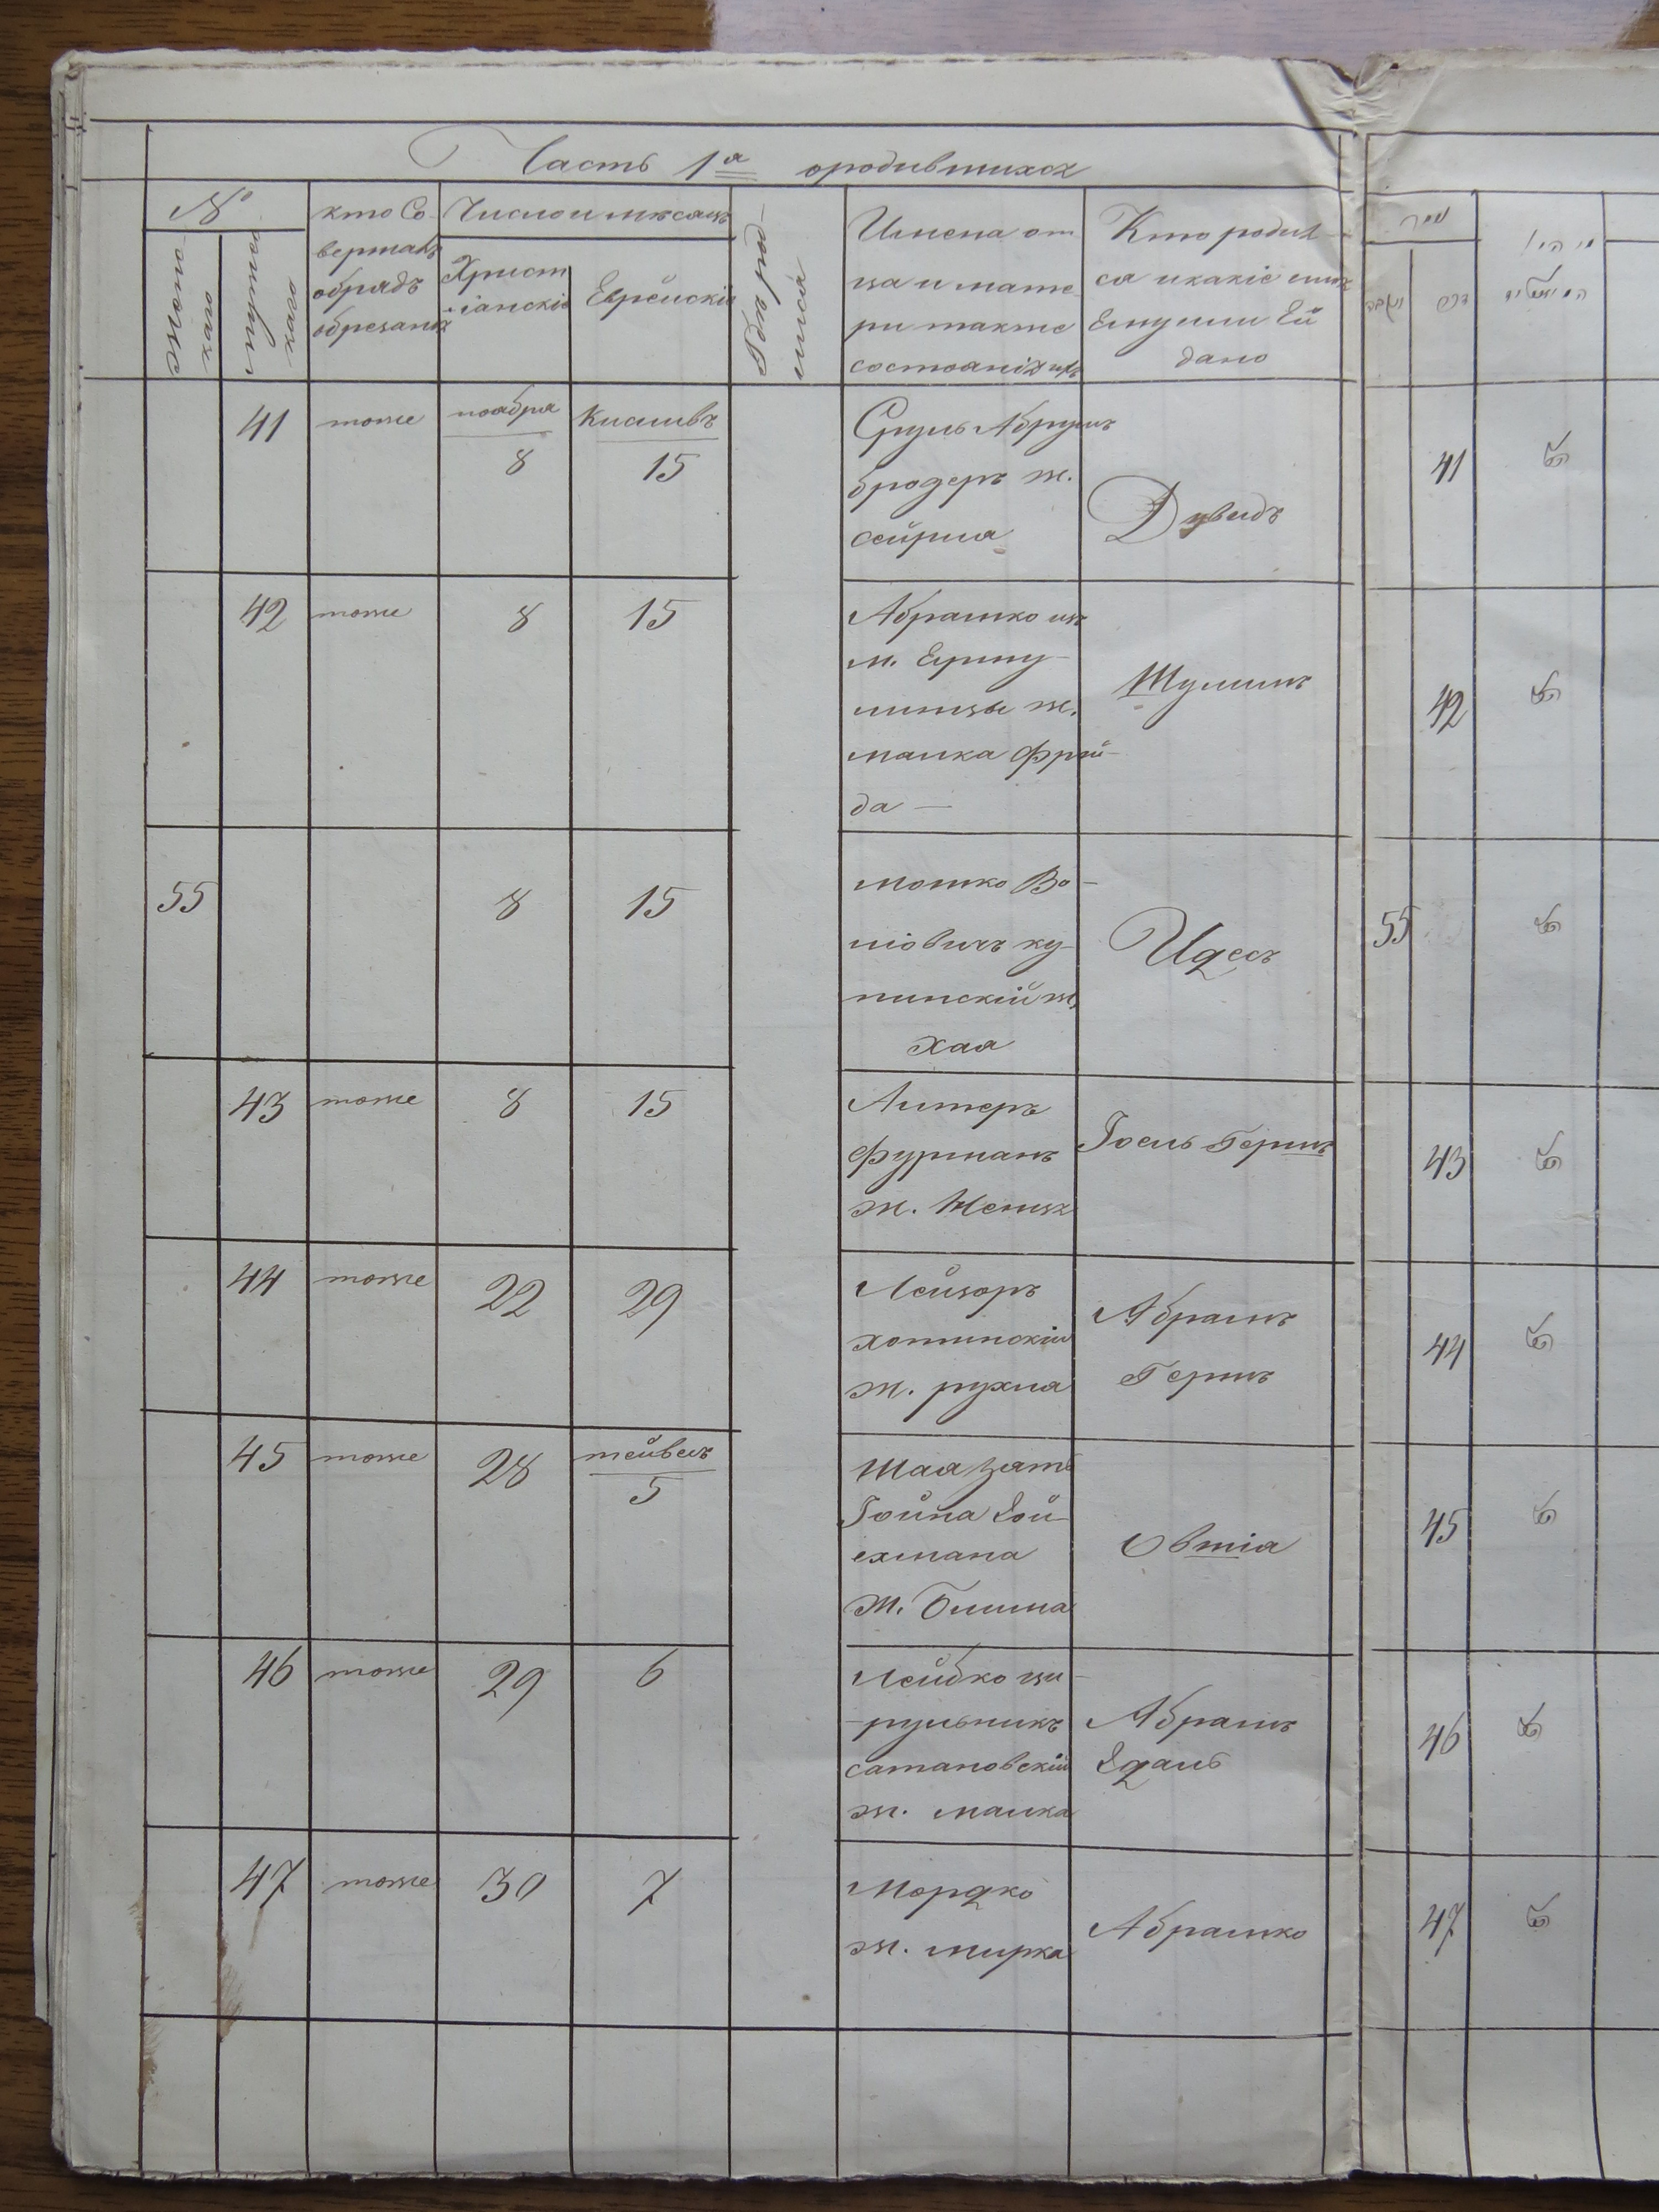 Часть 1ª ородившихся
№
женс
каго
мужес
каго
кто Со
вершалъ
обрядъ
обрезанія
Число и мѣсацъ
Христ
ианскіе
Еврейскій
Где род
ился
Имена от
ца и мате
ри также
состоянія ихъ
Кто родил
ся икакіе имя
Ему или Ей
дано
41 тоже ноабря 8 Кисливъ 15
Сруль Абрумъ
бродеръ ж.
сейрла
Дувидъ
42 тоже 8 15
Абрамко изъ
м.
ж.
малка фрей
да —
Шулимъ
55 8 15
мошко Во
ліовичъ ку
пинскій ж.
хая
Идесъ
43 тоже 8 15
Алтеръ
фурманъ
ж.Ненця
Іосль Гершъ
44 тоже 22 29
Лейзоръ
хотинскій
ж. рухля
Абрамъ
Гершъ
45 тоже 28 тейвесъ 5
Шая зять
Іойна Дой
ехмана
ж. Блима
Овшія
46 тоже 29 6
Лейбко ци
-рульникъ
сатановскій
ж. малка
Абрамъ
Идаль
47 тоже 30 7
Мордко
ж. мирка
Абрамко
41
42
55
43
44
45
46
47